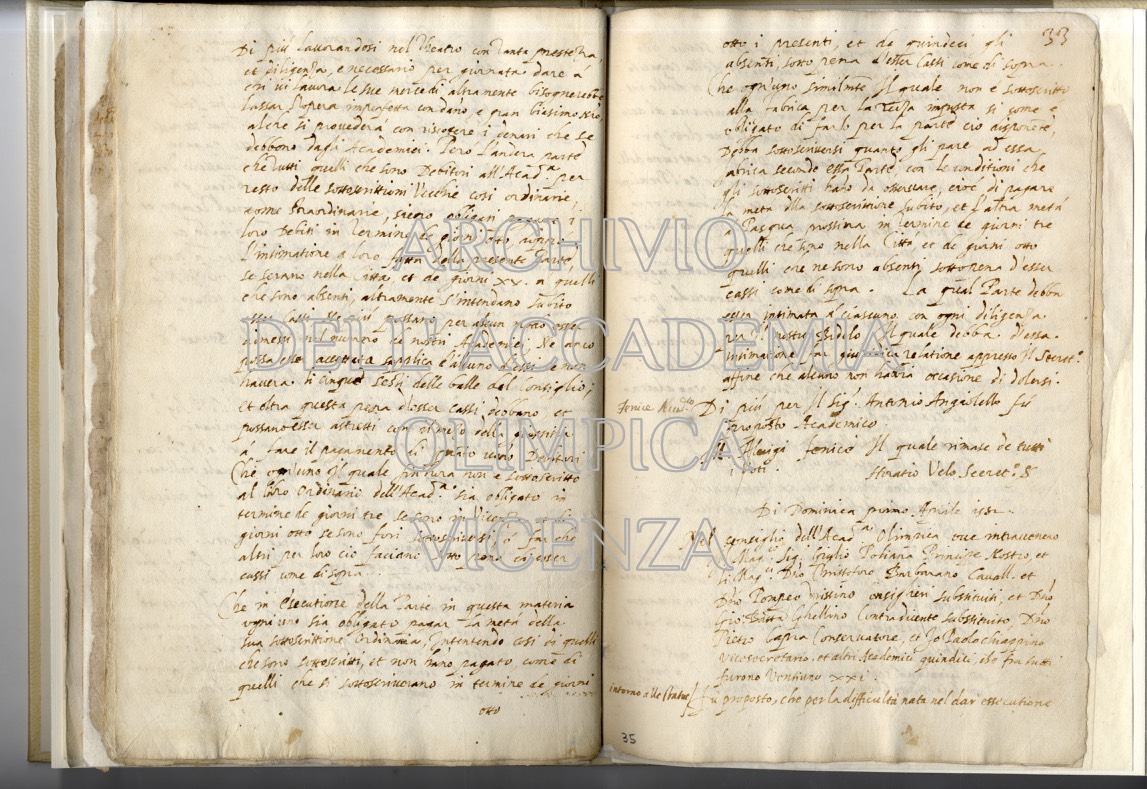 Di più lavorandosi nel Theatro con tanta prestezza,
et diligenza, e necessario per giornata dare à
chi vi lavora le sue mercedi altramente bisognerebbe
lassar l'opera imperfetta con dano, e gran biasimo
al che si provederà con riscotere i denari che se
debbono dagli Academici. Però l'andera parte
che tutti quelli che sono Debitori all'Acad.ª per
resto delle sottoscrittioni Vecchie così ordinarie,
come straordinarie, siano obligati pagare i
loro Debiti in termine de giorni otto
l'intimatione a loro fatta della presente Parte,
se serano nella Città et de giorni XX. a quelli
che sono absenti, altramente s'intendano subito
esser cassi Ne più possano per alcun modo esser
admessi nel numero de nostri Academici. Ne anco
possa esser accettata supplica d'alcuno d'essi se non
havera li cinque sesti delle balle del Consiglio;
Et oltra questa pena d'esser cassi debbano et
possano esser astretti con rimedio della giustitia
a fare il pagamento di quanto sono Debitori
Che ogn'uno Il quale in hora non e sottoscritto
al libro ordinario dell'Acad.ª sia obligato in
termine de giorni tre se sono in Vicenza
giorni otto se sono fuori sottoscriversi ò far che
altri per loro ciò faciano sotto pena di esser
cassi come di sopra.
Che in essecutione della Parte in questa materia
ogni uno sia obligato pagar la metà della
sua sottoscrittione Ordinaria, Intendendo così di quelli
che sono sottoscritti, et non hano pagato come di
quelli che si sottoscriverano in termine de giorni
otto
33
otto i presenti, et de quindeci gli
absenti, sotto pena d'esser Cassi come di sopra.
Che ogn'uno similmente Il quale non e sottoscritto
alla Fabrica per la imposta si come e
obligato di farlo per la parte ciò disponente,
Debba sottoscriversi quanto gli pare ad essa
fabrica secondo essa Parte, con le conditioni che
gli sottoscritti hano da osservare, cioè di pagare
la metà dlla sottoscrittione subito, et l'altra metà
a Pasqua prossima in termine de giorni tre
quelli che sono nella Città et de giorni otto
quelli che ne sono absenti sotto pena d'esser
cassi come di sopra. La qual Parte debba
esser intimata à ciascuno con ogni diligenza
per il nostro Bidelo Il quale debba d'essa
intimatione far giuridica relatione appresso Il Secret.º
affine che alcuno non habbia occasione di dolersi.
Fenice
Di più per Il Sig.r Antonio Angiolello fù
proposto Academico
Alvigi fenice Il quale rimase de tutti
i voti. Horatio Velo Secret.º S
Di Dominica primo Aprile 1582.
Nel consiglio dell'Acad.ª Olimpica ove intraveneno
Il Mag.co Sig. Poliana Principe Nostro, et
li Mag.ci Dno Christoforo Barbarano Cavall. et
Dno Pompeo Trissino consiglieri substituiti, et Dno
Gio: Batta Ghellino Contradicente substituito, Dno
Pietro Capra Conservatore, et Io Paolo chiappino
Vicesecretario, et altri Academici quindici, che fra tutti
furono Ventiuno XXI.
intorno alle statue
Fù proposto, che per la difficultà nata nel dar essecutione
35
ARCHIVIO
DELL'ACCADEMIA
OLIMPICA
VICENZA